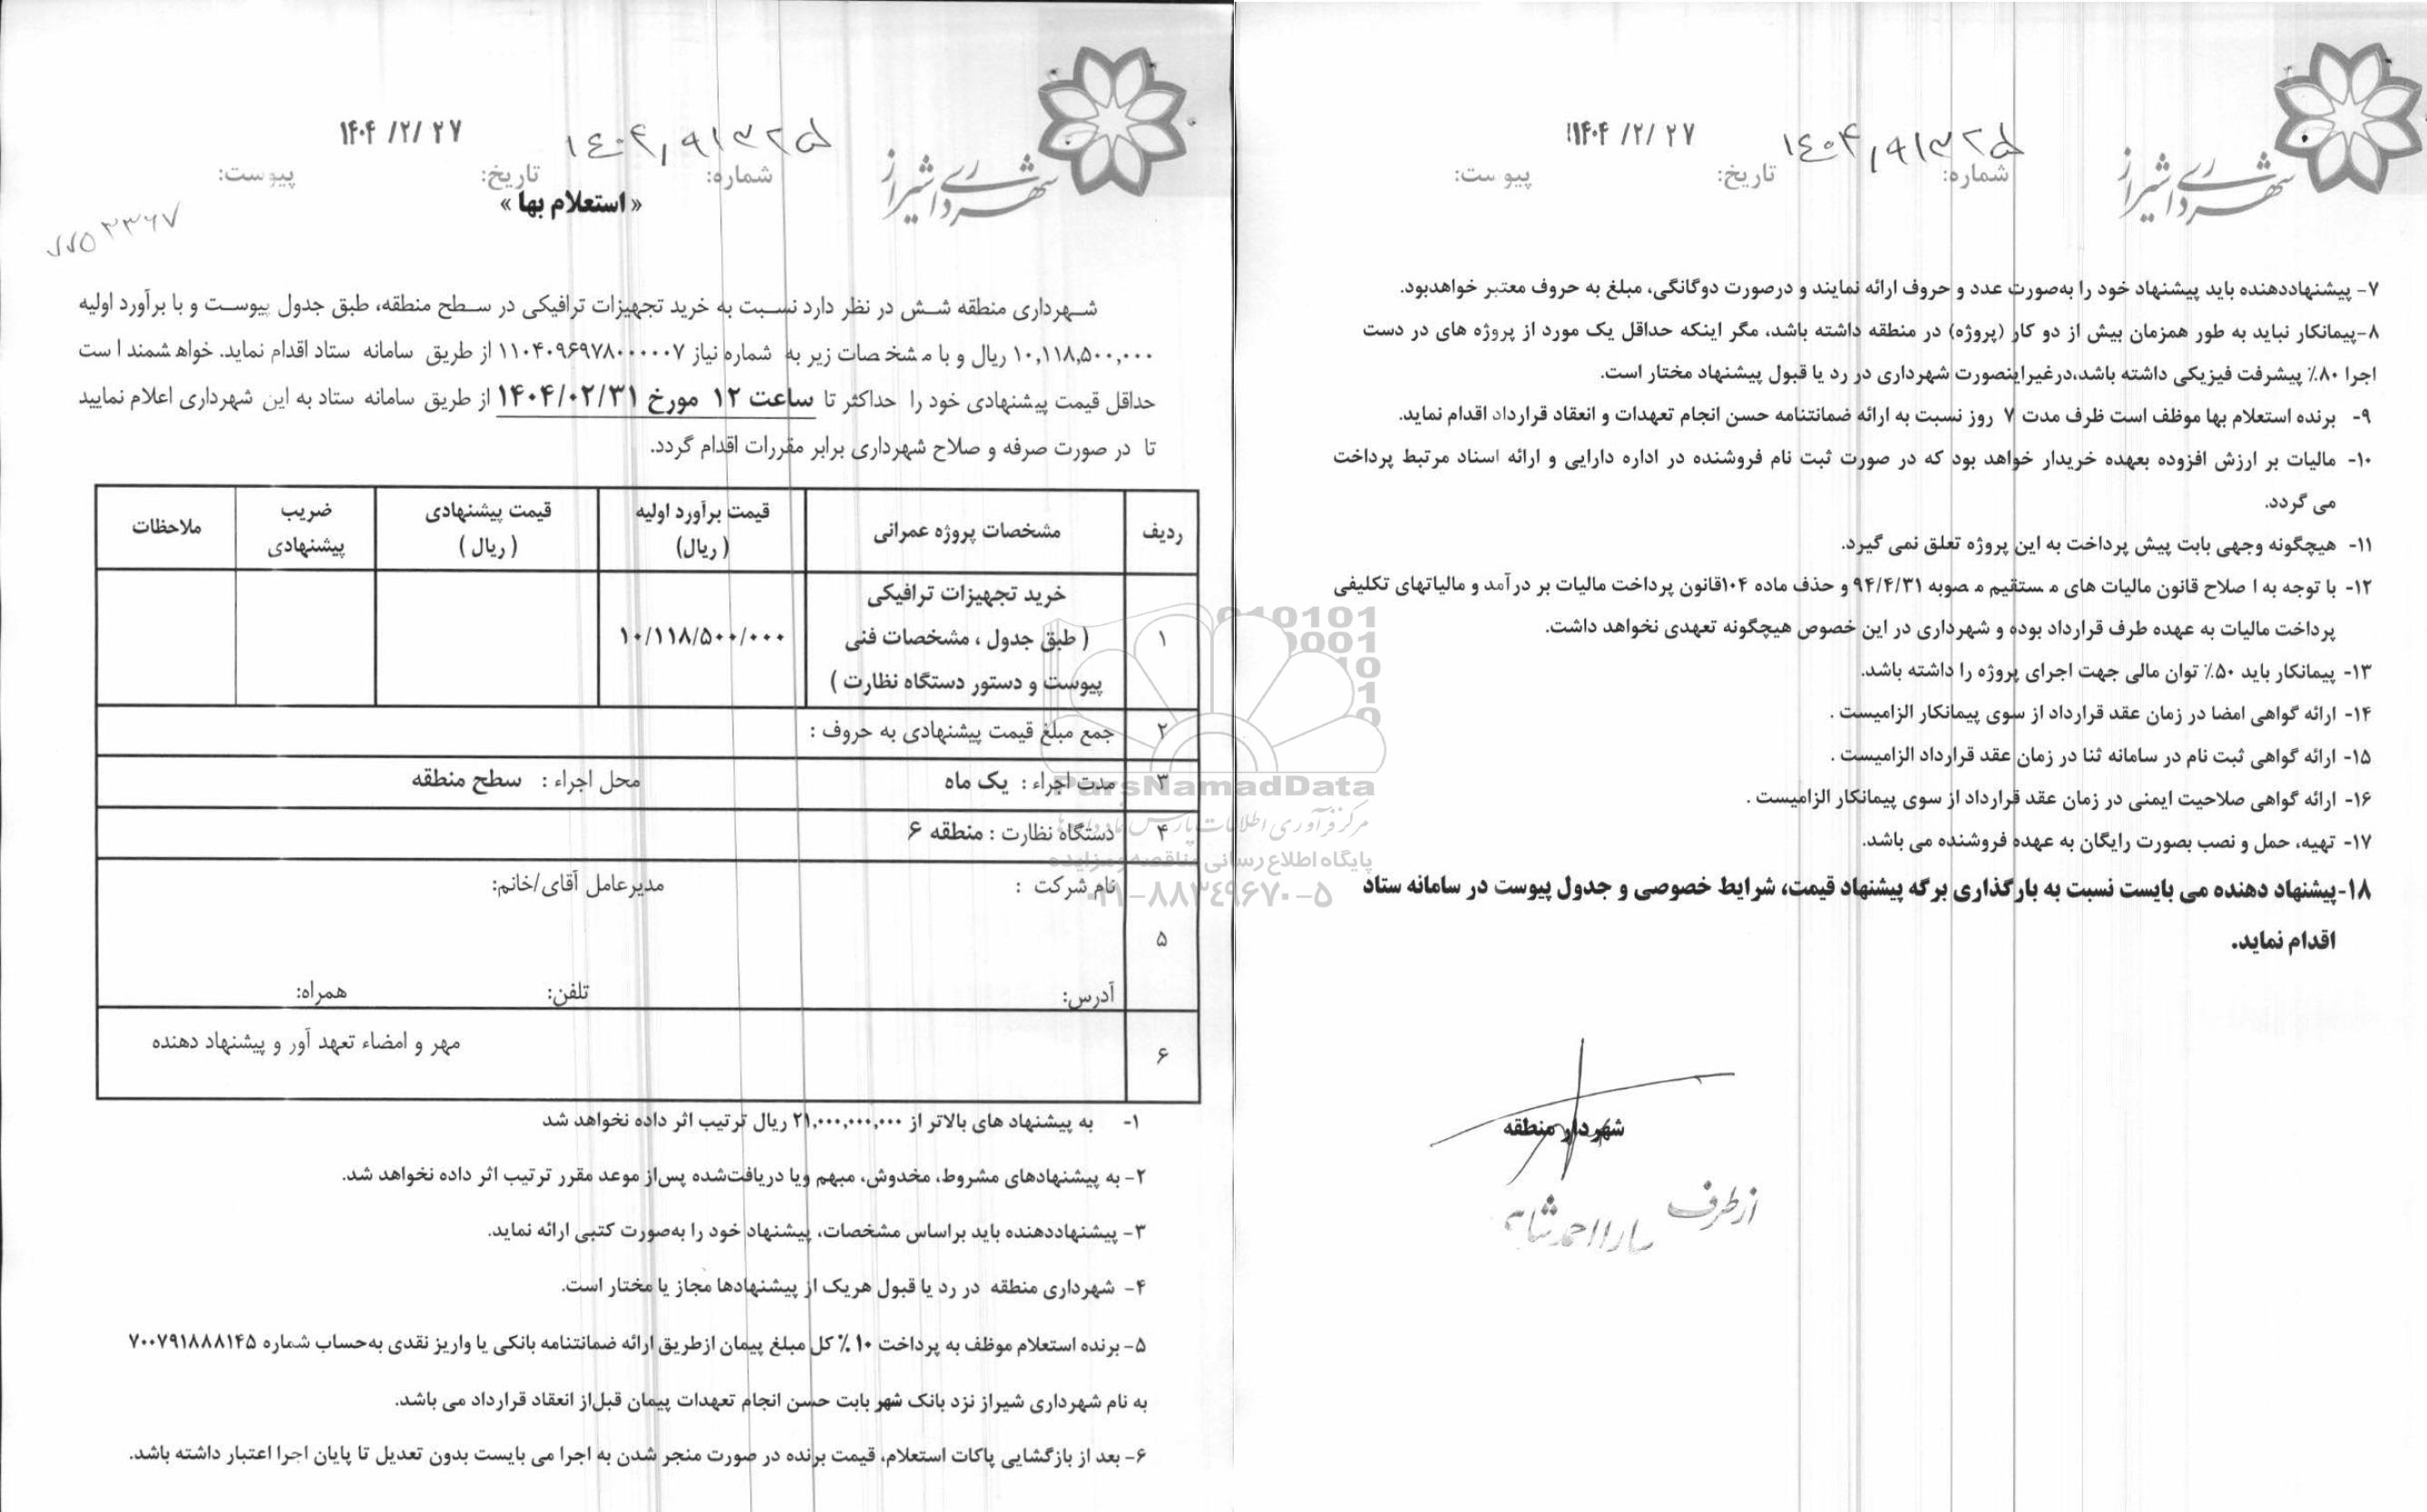 شهرداری شیراز
۱۴۰۴/۹۱۳۲۵
۱۴۰۴ /۲/ ۲۷
شماره: تاریخ: پیوست:
« استعلام بها »
شهرداری منطقه شش در نظر دارد نسبت به خرید تجهیزات ترافیکی در سطح منطقه، طبق جدول پیوست و با برآورد اولیه
۱۰,۱۱۸,۵۰۰,۰۰۰ ریال و با مشخصات زیر به شماره نیاز ۱۱۰۴۰۹۶۹۷۸۰۰۰۰۰۷ از طریق سامانه ستاد اقدام نماید. خواهشمند است
حداقل قیمت پیشنهادی خود را حداکثر تا ساعت ۱۲ مورخ ۱۴۰۴/۰۲/۳۱ از طریق سامانه ستاد به این شهرداری اعلام نمایید
تا در صورت صرفه و صلاح شهرداری برابر مقررات اقدام گردد.
ردیف مشخصات پروژه عمرانی قیمت برآورد اولیه (ریال) قیمت پیشنهادی (ریال) ضریب پیشنهادی ملاحظات
۱ خرید تجهیزات ترافیکی
( طبق جدول ، مشخصات فنی ۱۰/۱۱۸/۵۰۰/۰۰۰
پیوست و دستور دستگاه نظارت )
۲ جمع مبلغ قیمت پیشنهادی به حروف :
۳ مدت اجراء : یک ماه محل اجراء : سطح منطقه
۴ دستگاه نظارت : منطقه ۶
نام شرکت : مدیرعامل آقای/خانم:
۵
آدرس: تلفن: همراه:
۶ مهر و امضاء تعهد آور و پیشنهاد دهنده
۱- به پیشنهاد های بالاتر از ۲۱,۰۰۰,۰۰۰,۰۰۰ ریال ترتیب اثر داده نخواهد شد
۲- به پیشنهادهای مشروط، مخدوش، مبهم ویا دریافت‌شده پس‌از موعد مقرر ترتیب اثر داده نخواهد شد.
۳- پیشنهاددهنده باید براساس مشخصات، پیشنهاد خود را به‌صورت کتبی ارائه نماید.
۴- شهرداری منطقه در رد یا قبول هریک از پیشنهادها مجاز یا مختار است.
۵- برنده استعلام موظف به پرداخت ۱۰ ٪ کل مبلغ پیمان ازطریق ارائه ضمانتنامه بانکی یا واریز نقدی به‌حساب شماره ۷۰۰۷۹۱۸۸۸۱۴۵
به نام شهرداری شیراز نزد بانک شهر بابت حسن انجام تعهدات پیمان قبل‌از انعقاد قرارداد می باشد.
۶- بعد از بازگشایی پاکات استعلام، قیمت برنده در صورت منجر شدن به اجرا می بایست بدون تعدیل تا پایان اجرا اعتبار داشته باشد.
شهرداری شیراز
۱۴۰۴/۹۱۳۲۵
۱۴۰۴ /۲/ ۲۷
شماره: تاریخ: پیوست:
۷- پیشنهاددهنده باید پیشنهاد خود را به‌صورت عدد و حروف ارائه نمایند و درصورت دوگانگی، مبلغ به حروف معتبر خواهدبود.
۸-پیمانکار نباید به طور همزمان بیش از دو کار (پروژه) در منطقه داشته باشد، مگر اینکه حداقل یک مورد از پروژه های در دست
اجرا ۸۰٪ پیشرفت فیزیکی داشته باشد،درغیراینصورت شهرداری در رد یا قبول پیشنهاد مختار است.
۹- برنده استعلام بها موظف است ظرف مدت ۷ روز نسبت به ارائه ضمانتنامه حسن انجام تعهدات و انعقاد قرارداد اقدام نماید.
۱۰- مالیات بر ارزش افزوده بعهده خریدار خواهد بود که در صورت ثبت نام فروشنده در اداره دارایی و ارائه اسناد مرتبط پرداخت
می گردد.
۱۱- هیچگونه وجهی بابت پیش پرداخت به این پروژه تعلق نمی گیرد.
۱۲- با توجه به اصلاح قانون مالیات های مستقیم مصوبه ۹۴/۴/۳۱ و حذف ماده ۱۰۴قانون پرداخت مالیات بر درآمد و مالیاتهای تکلیفی
پرداخت مالیات به عهده طرف قرارداد بوده و شهرداری در این خصوص هیچگونه تعهدی نخواهد داشت.
۱۳- پیمانکار باید ۵۰٪ توان مالی جهت اجرای پروژه را داشته باشد.
۱۴- ارائه گواهی امضا در زمان عقد قرارداد از سوی پیمانکار الزامیست .
۱۵- ارائه گواهی ثبت نام در سامانه ثنا در زمان عقد قرارداد الزامیست .
۱۶- ارائه گواهی صلاحیت ایمنی در زمان عقد قرارداد از سوی پیمانکار الزامیست .
۱۷- تهیه، حمل و نصب بصورت رایگان به عهده فروشنده می باشد.
۱۸-پیشنهاد دهنده می بایست نسبت به بارگذاری برگه پیشنهاد قیمت، شرایط خصوصی و جدول پیوست در سامانه ستاد
اقدام نماید.
شهردار منطقه
از طرف
ParsNamadData
پایگاه اطلاع رسانی مناقصه و مزایده
۰۲۱-۸۸۳۴۹۶۷۰-۵